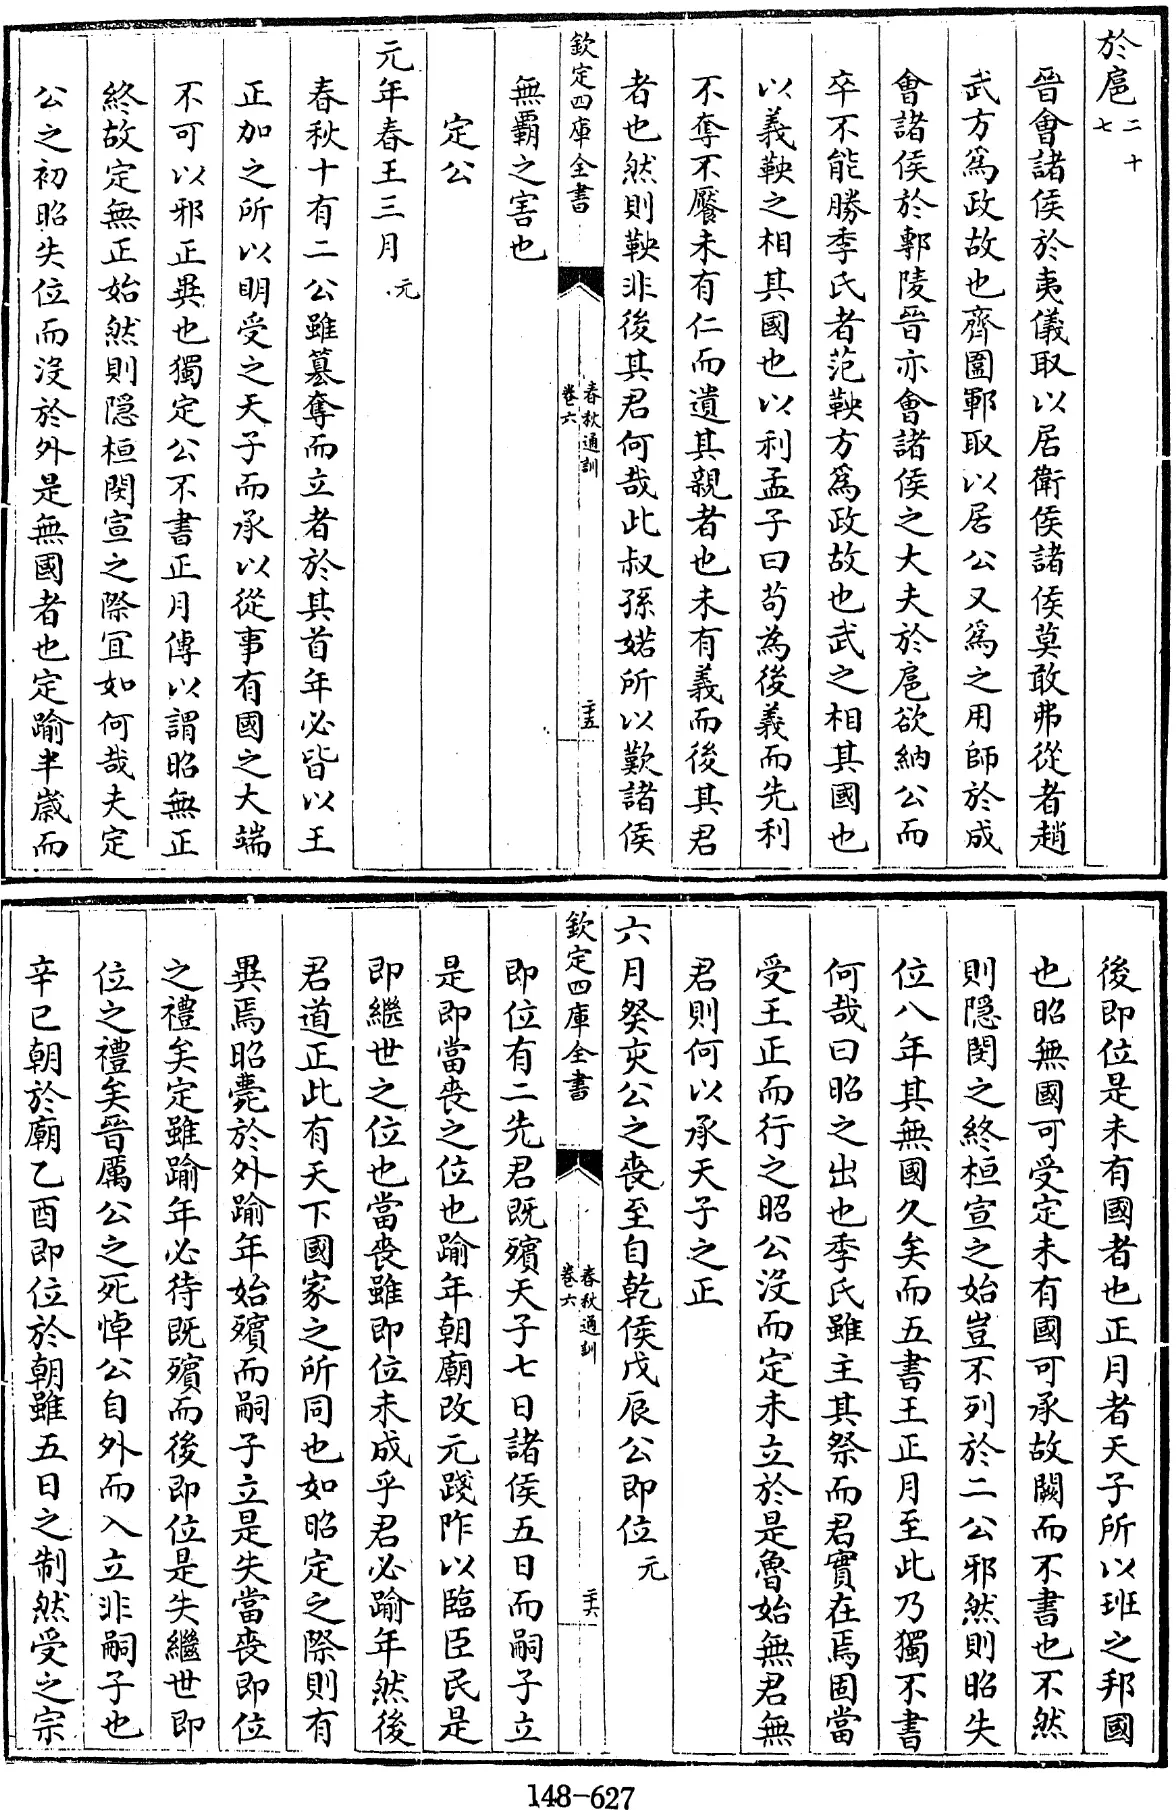 於扈二十七
晉會諸侯於夷儀取以居衛侯諸侯莫敢弗從者趙
武方為政故也齊圍鄆取以居公又為之用師於成
會諸侯於鄟陵晉亦會諸侯之大夫於扈欲納公而
卒不能勝季氏者范鞅方為政故也武之相其國也
以義鞅之相其國也以利孟子曰苟為後義而先利
不奪不饜未有仁而遺其親者也未有義而後其君
者也然則鞅非後其君何哉此叔孫婼所以歎諸侯
欽定四庫全書
春秋通訓
卷六
二十五
無霸之害也
定公
元年春王三月元
春秋十有二公雖篡奪而立者於其首年必皆以王
正加之所以明受之天子而承以從事有國之大端
不可以邪正異也獨定公不書正月傳以謂昭無正
終故定無正始然則隱桓閔宣之際宜如何哉夫定
公之初昭失位而沒於外是無國者也定踰半歲而
後即位是未有國者也正月者天子所以班之邦國
也昭無國可受定未有國可承故闕而不書也不然
則隱閔之終桓宣之始豈不列於二公邪然則昭失
位八年其無國久矣而五書王正月至此乃獨不書
何哉曰昭之出也季氏雖主其祭而君實在焉固當
受王正而行之昭公沒而定未立於是魯始無君無
君則何以承天子之正
六月癸亥公之喪至自乾侯戊辰公即位元
欽定四庫全書
春秋通訓
卷六
二十六
即位有二先君既殯天子七日諸侯五日而嗣子立
是即當喪之位也踰年朝廟改元踐阼以臨臣民是
即繼世之位也當喪雖即位未成乎君必踰年然後
君道正此有天下國家之所同也如昭定之際則有
異焉昭薨於外踰年始殯而嗣子立是失當喪即位
之禮矣定雖踰年必待既殯而後即位是失繼世即
位之禮矣晉厲公之死悼公自外而入立非嗣子也
辛巳朝於廟乙酉即位於朝雖五日之制然受之宗
148-627